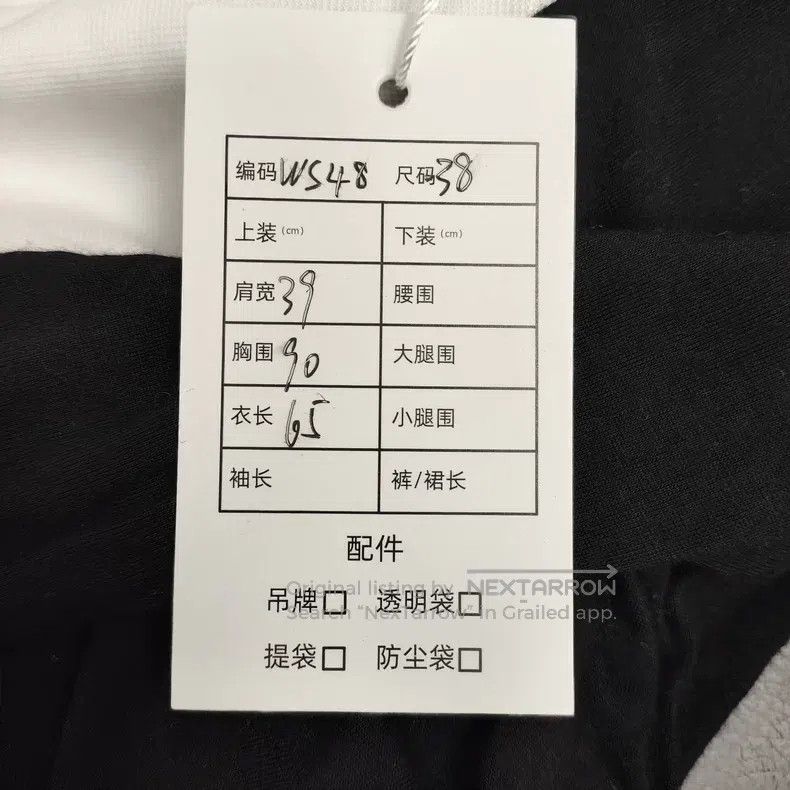 编码 WS48 尺码 38
上装 (cm) 下装 (cm)
肩宽 39 腰围
胸围 90 大腿围
衣长 65 小腿围
袖长 裤/裙长
配件
吊牌□ 透明袋□
Original listing by NEXTARROW
Search "NexTarrow" in Grailed app.
提袋□ 防尘袋□